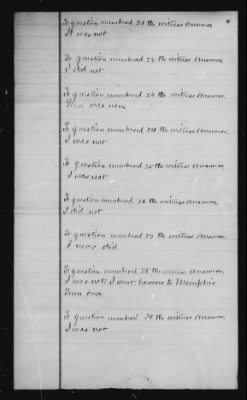 To question numbered 21 the witness Answers
It was not
To question numbered 22 the witness Answers
I did not
To question numbered 23 the witness Answers,
There was none
To question numbered 24 the witness Answers,
I was not
To question numbered 25 the witness Answers,
I was not.
To question numbered 26 the witness Answers,
I did not
To question numbered 27 the witness Answers,
I never did
To question numbered 28 the witness Answers,
I was not; I went however to Memphis
Tenn once
To question numbered 29 the witness Answers,
I was not